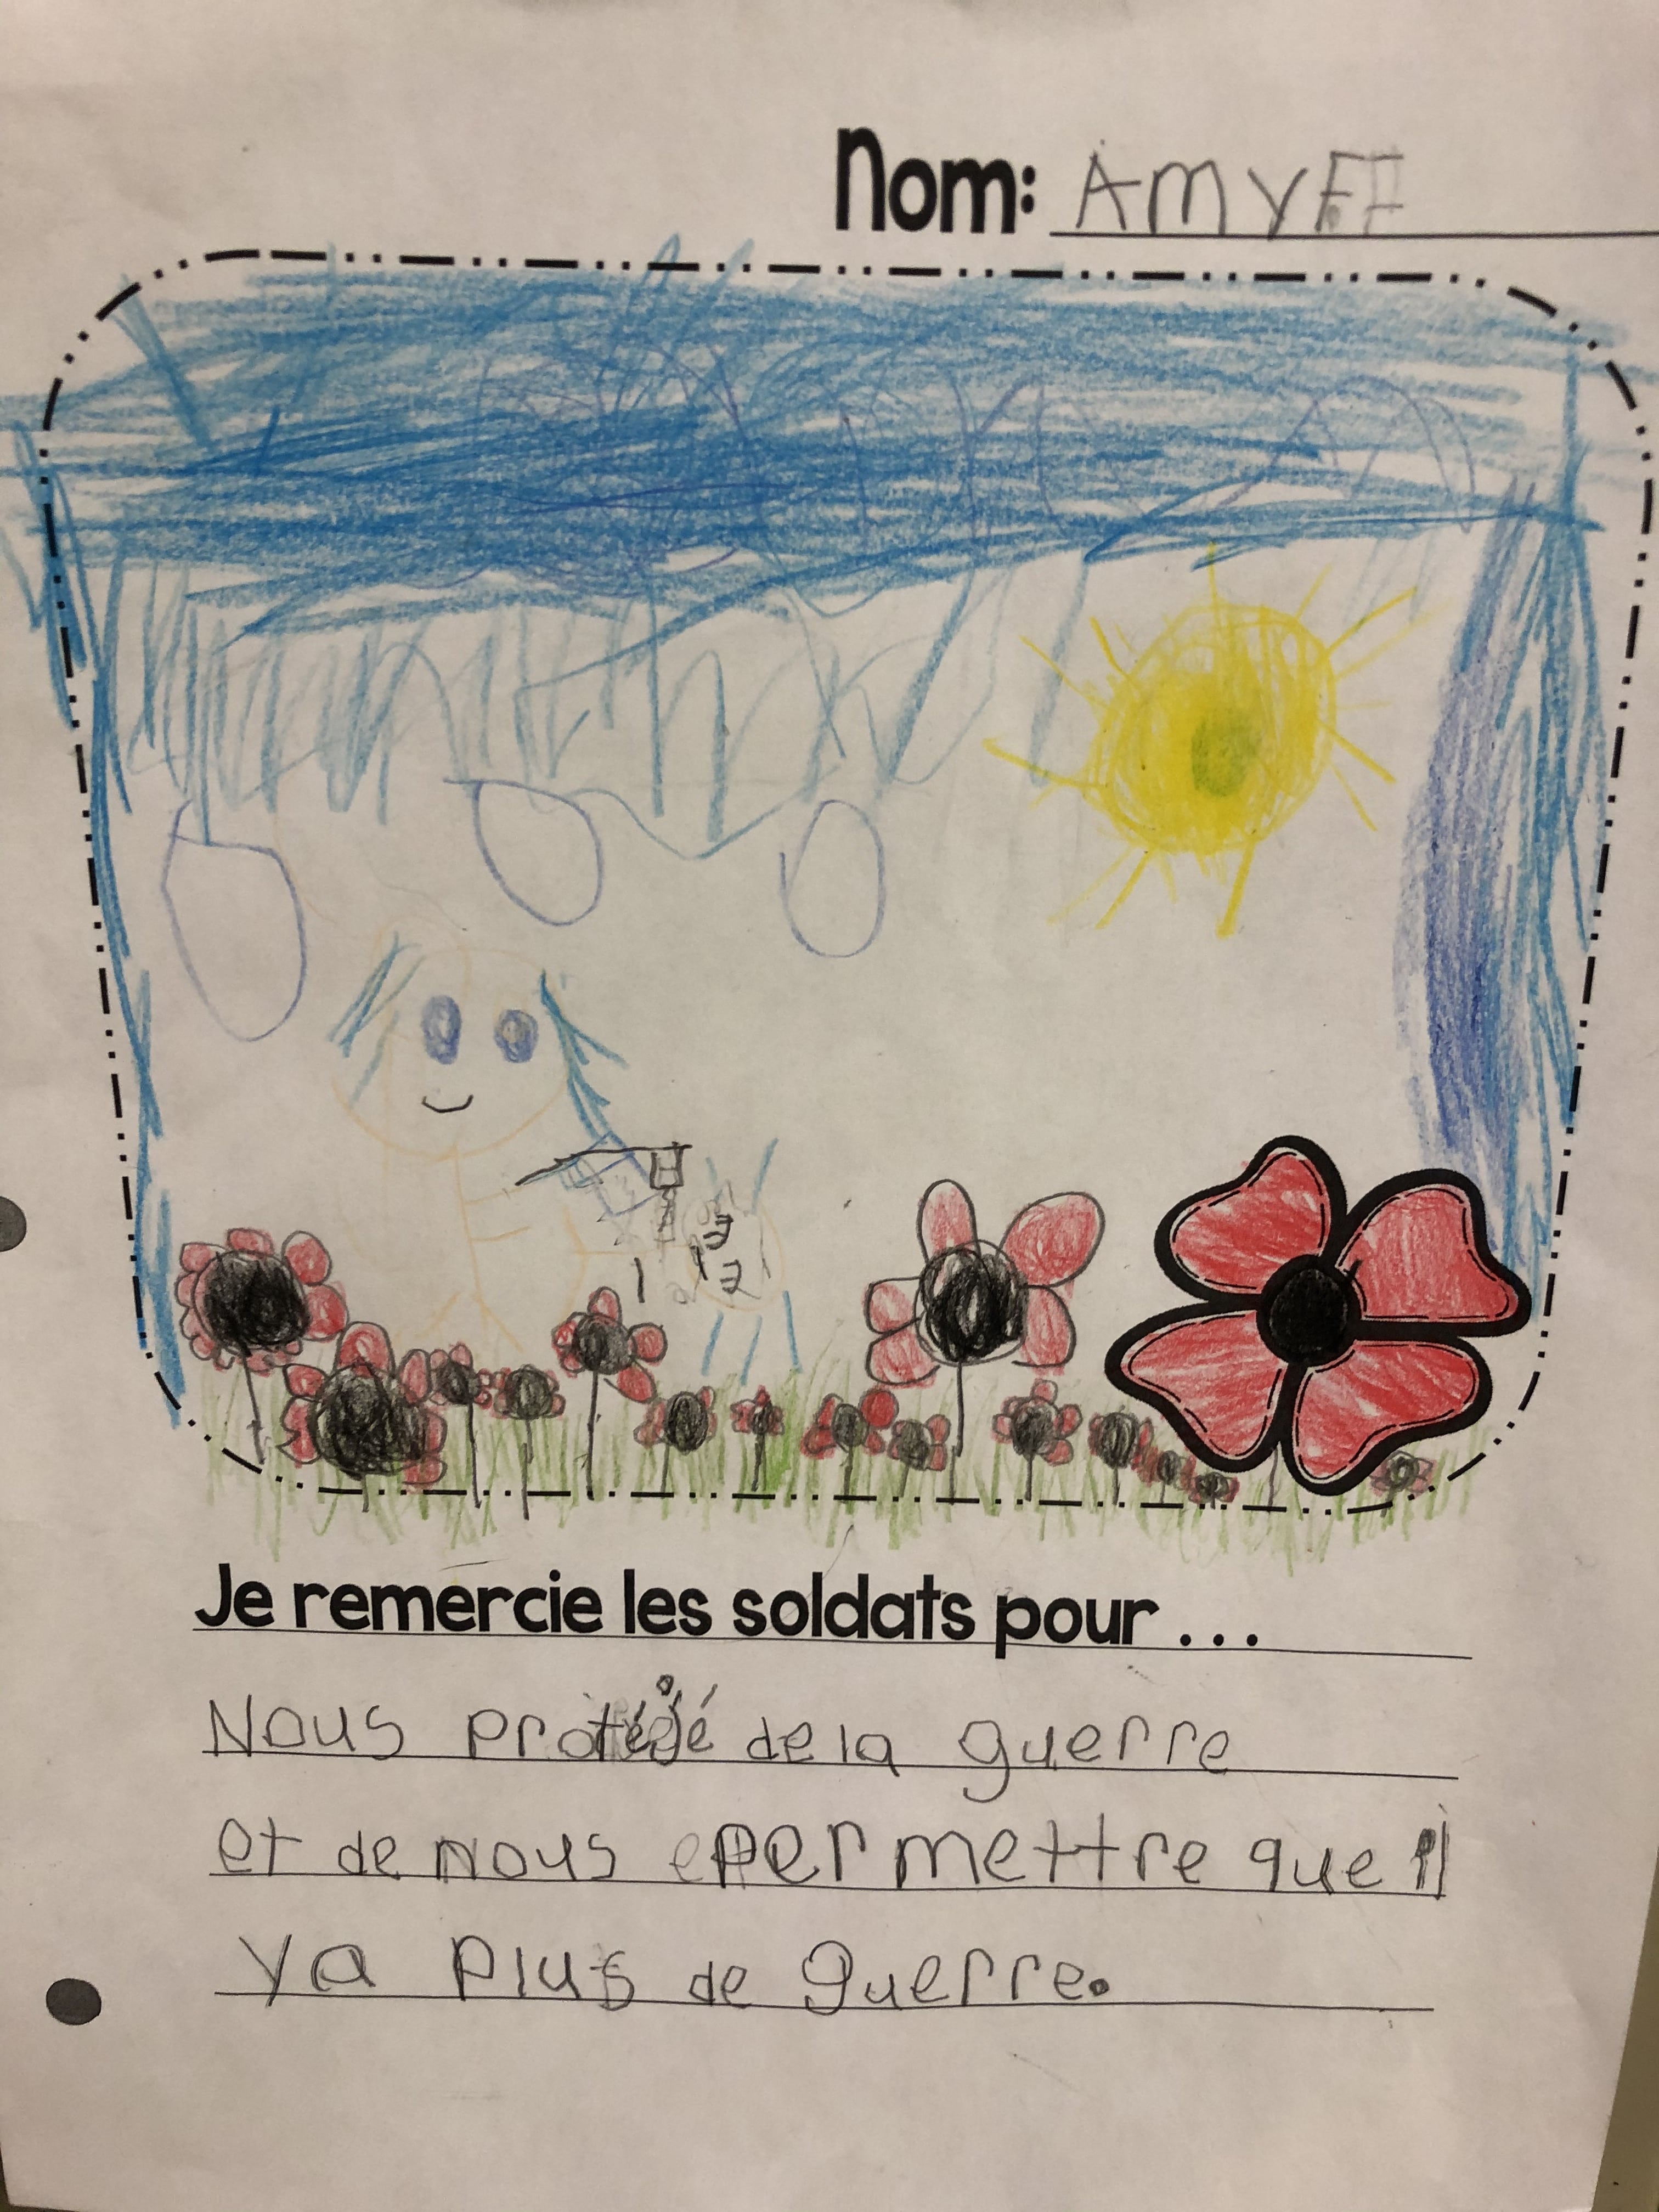 Nom: AMYFF
Je remercie les soldats pour...
Nous protégé de la guerre
et de nous permettre que il
ya plus de guerre.